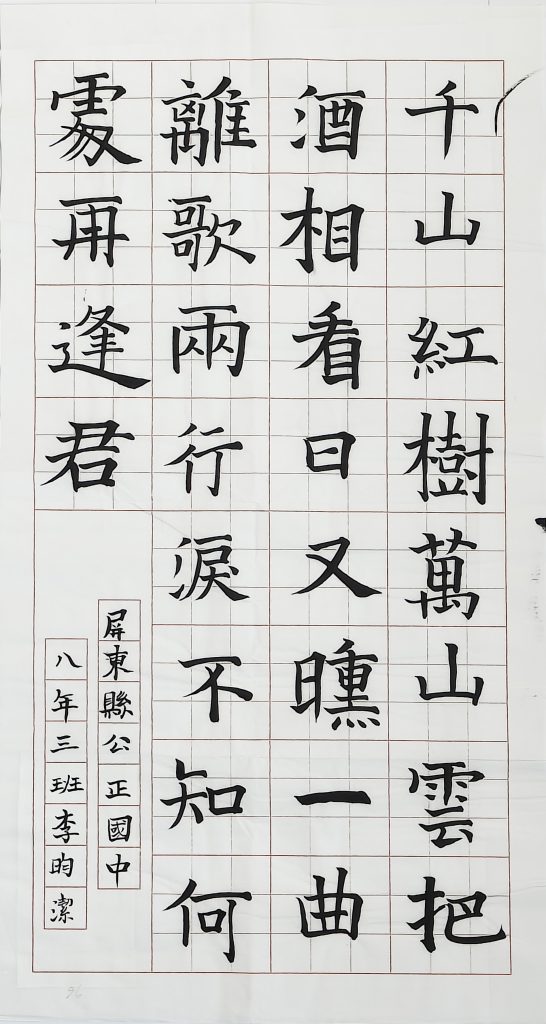 千山紅樹萬山雲把
酒相看日又曛一曲
離歌兩行淚不知何
處再逢君
屏東縣公正國中
八年三班李昀潔